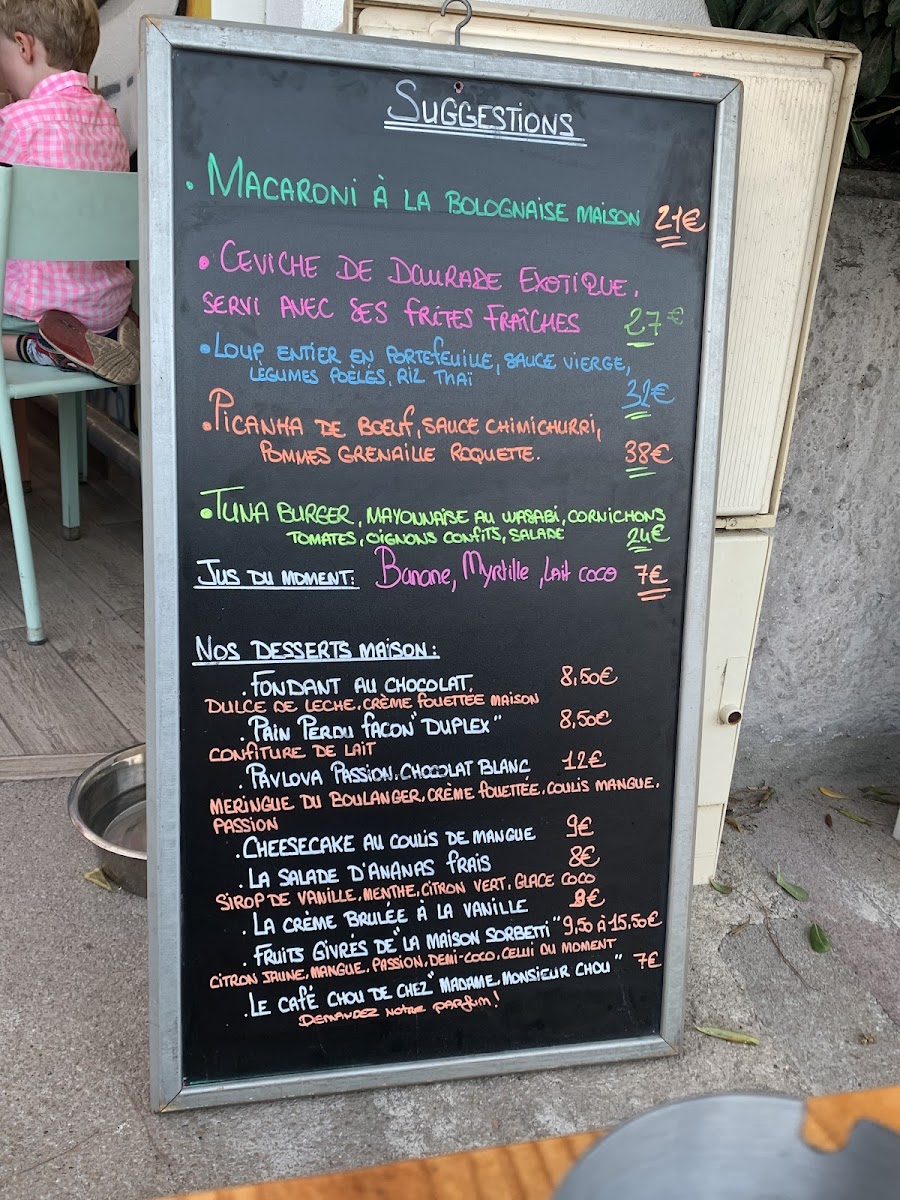 SUGGESTIONS
. MACARONI À LA BOLOGNAISE MAISON 21€
• CEVICHE DE DAURADE EXOTIQUE,
SERVI AVEC SES FRITES FRAÎCHES 27€
• LOUP ENTIER EN PORTEFEUILLE, SAUCE VIERGE,
LÉGUMES POÊLÉS, RIZ THAÏ
32€
• PICANHA DE BOEUF, SAUCE CHIMICHURRI,
POMMES GRENAILLE ROQUETTE. 38€
• TUNA BURGER, MAYONNAISE AU WASABI, CORNICHONS
TOMATES, OIGNONS CONFITS, SALADE 24€
JUS DU MOMENT: Banane, Myrtille, Lait coco 7€
NOS DESSERTS MAISON:
. FONDANT AU CHOCOLAT. 8,50€
DULCE DE LECHE. CRÈME FOUETTÉE MAISON
. PAIN PERDU FACON "DUPLEX" 8,50€
CONFITURE DE LAIT
. PAVLOVA PASSION. CHOCOLAT BLANC 12€
MERINGUE DU BOULANGER, CRÈME FOUETTÉE. COULIS MANGUE.
PASSION
. CHEESECAKE AU COULIS DE MANGUE 9€
. LA SALADE D'ANANAS FRAIS 8€
SIROP DE VANILLE. MENTHE. CITRON VERT. GLACE COCO
. LA CRÈME BRULÉE À LA VANILLE 8€
. FRUITS GIVRÉS DE "LA MAISON SORBETTI" 9,50 À 15,50€
CITRON JAUNE, MANGUE, PASSION, DEMI-COCO, CELUI DU MOMENT
. LE CAFÉ CHOU DE CHEZ "MADAME, MONSIEUR CHOU" 7€
DEMANDEZ NOTRE PARFUM!